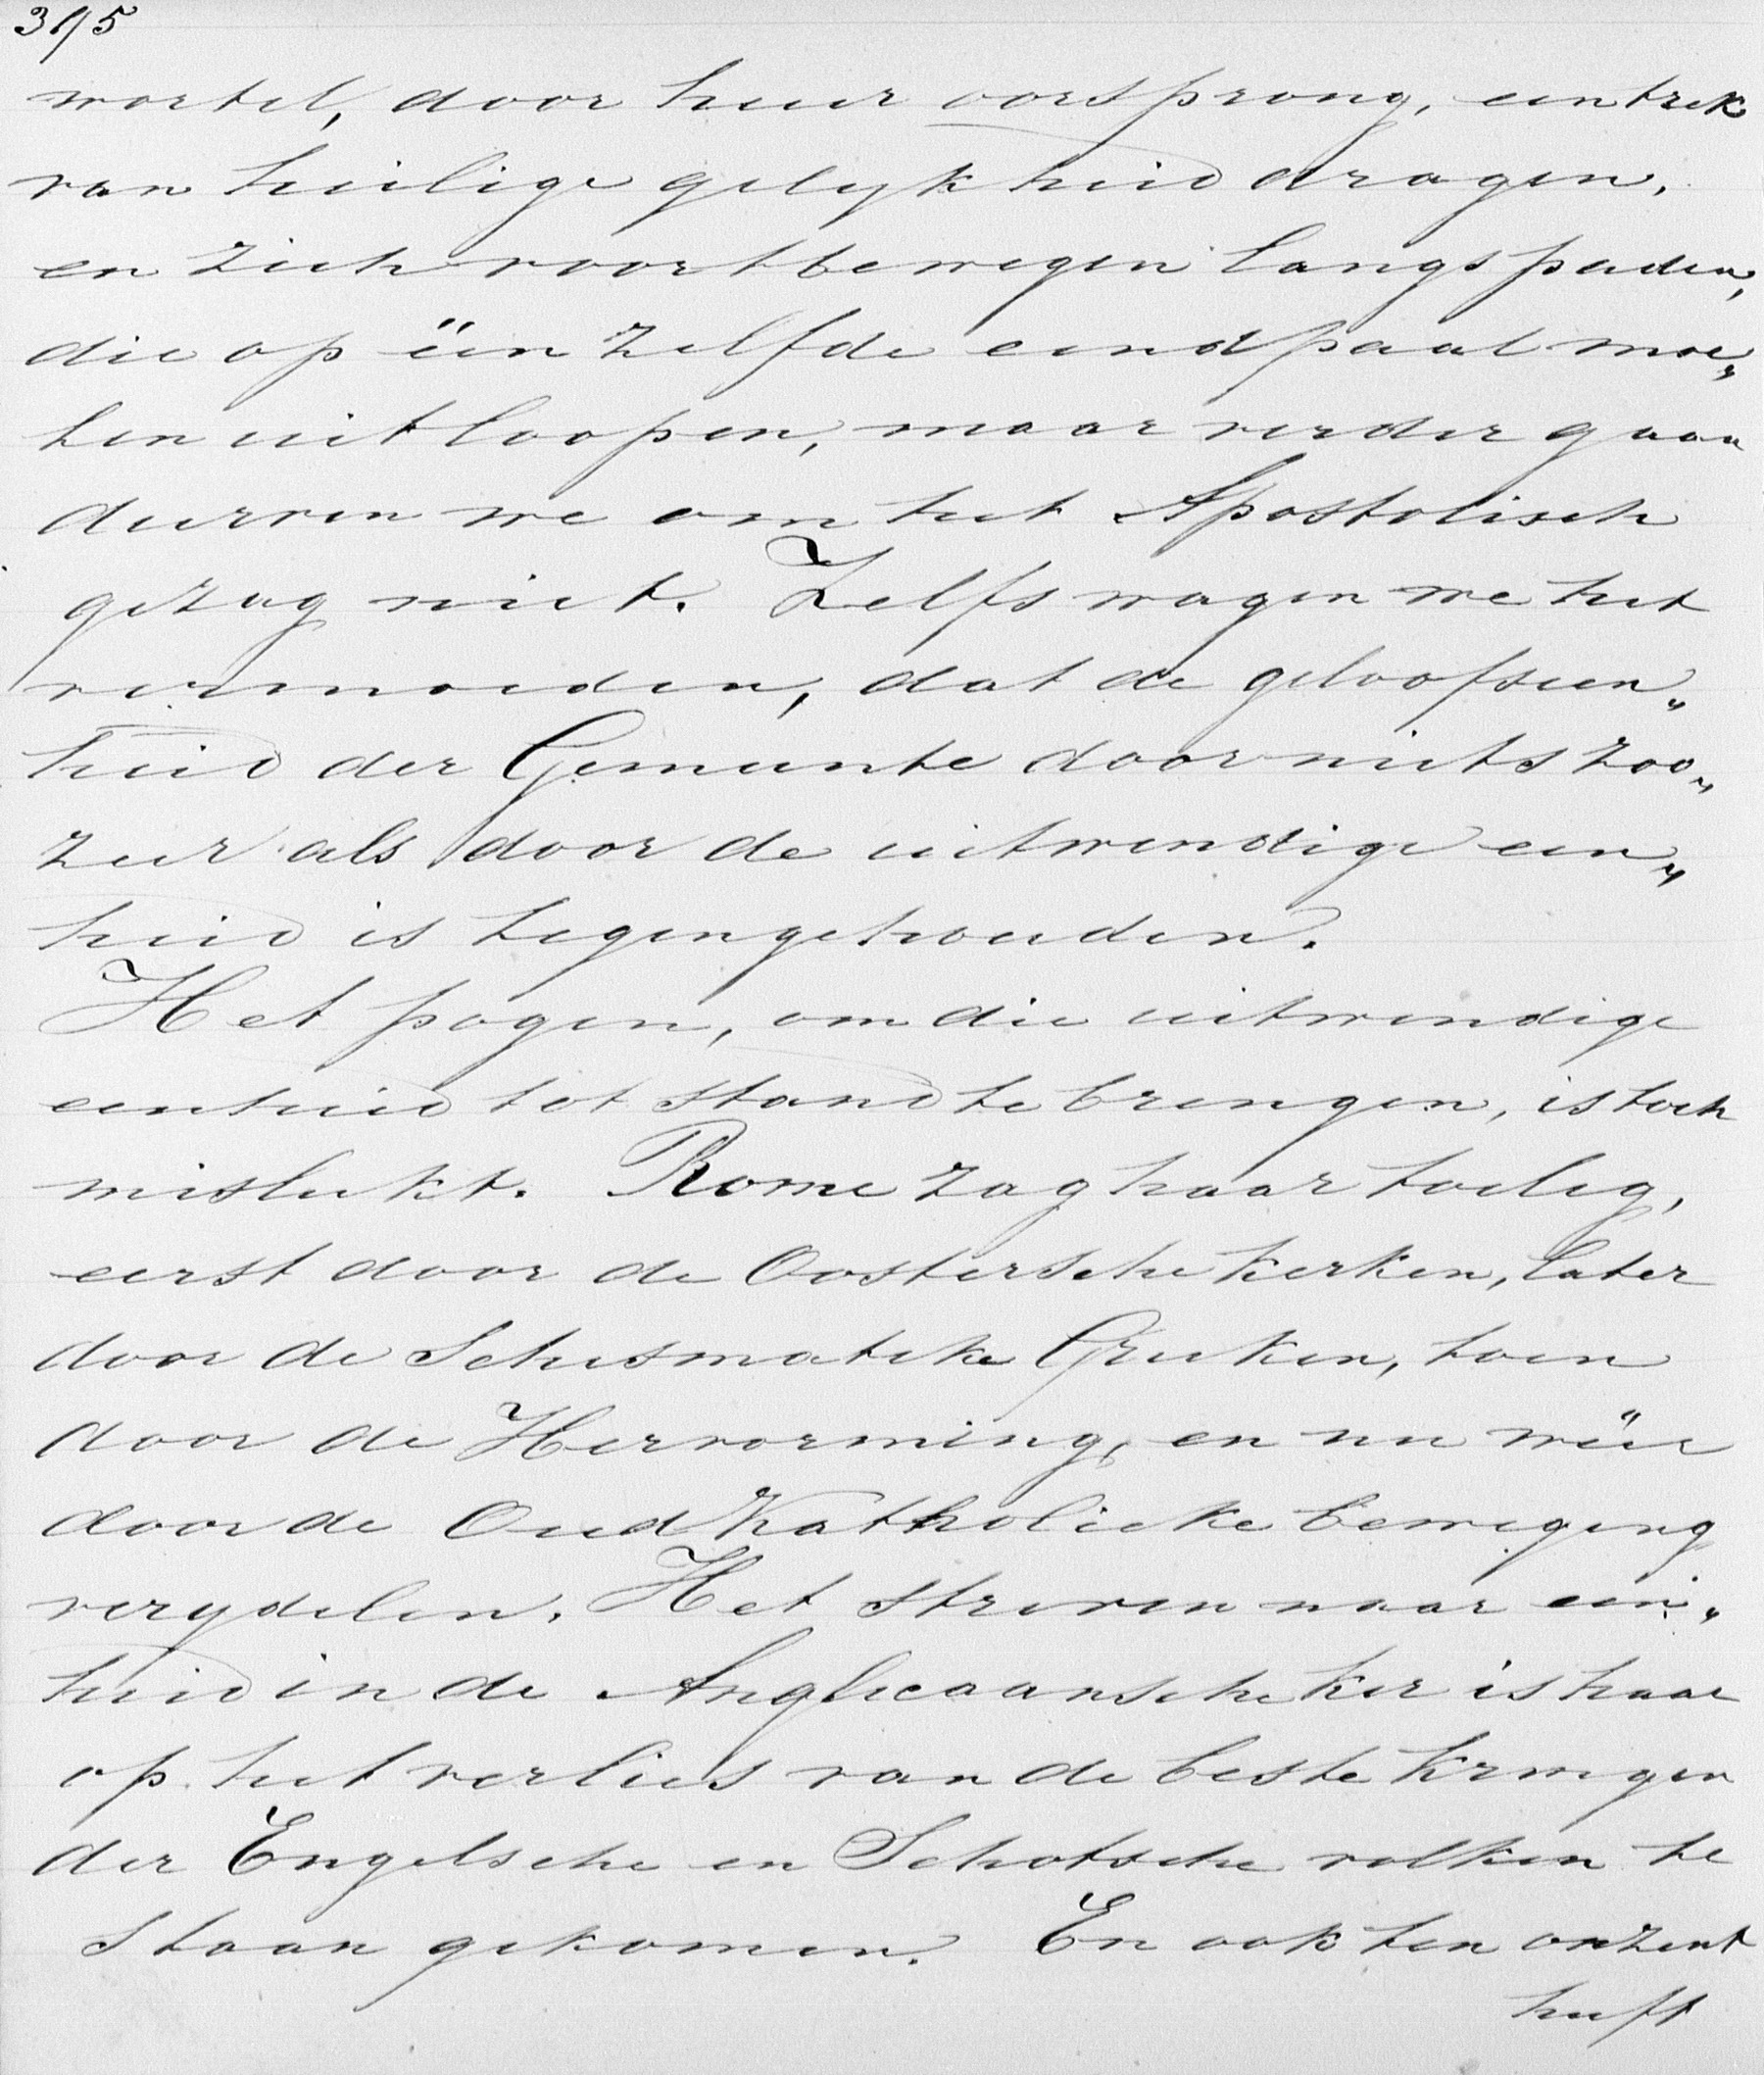 395
wortel, door huur oorsprong, een trek
van heilige gelykheid dragen,
en zich voortbewegen langs paden,
die op één zelfde eindpaal moe„
ten uitloopen, maar verder gaan
durven we om het Apostolisch
gezag niet. Zelfs wagen we het
vermoeden, dat de geloofseen„
heid der Gemeente door niets zoo„
zeer als door de uitwendige een„
heid is tegengehouden.
Het pogen, om die uitwendige
eenheid tot stand te brengen, is toch
mislukt. Rome zag haar toeleg,
eerst door de Oostersche kerken, later
door de Schismatieke Grieken, toen
door de Hervorming, en nu wéér
door de Oud Katholieke beweging
verydelen. Het streven naar een„
heid in de Anglicaansche ker is haar
op het verlies van de beste kringen
der Engelsche en Schotsche volken te
staan gekomen. En ook ten onzent
heeft